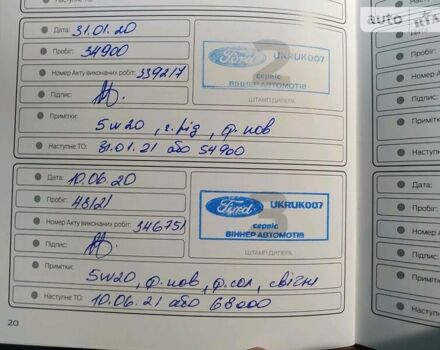 Дата: 31.01.20
Пробіг: 34900
Номер Акту виконаних робіт: 339217
Підпис:
Ford UKRUK007
сервіс
ВІННЕР АВТОМОТІВ
ШТАМП ДИЛЕРА
Примітки:
5w20, г.рід, ф. пов
Наступне ТО: 31.01.21 або 54900
Дата: 10.06.20
Пробіг: 48121
Номер Акту виконаних робіт: 346751
Підпис:
Ford UKRUK007
сервіс
ВІННЕР АВТОМОТІВ
ШТАМП ДИЛЕРА
Примітки:
5w20, ф.пов, ф.сал, свічки
Наступне ТО: 10.06.21 або 68000
20
Дата:
Пробіг:
Номер
Підпис
Примі
Насту
Дата:
Пробі
Номер
Підпи
Прим
Насту
auto